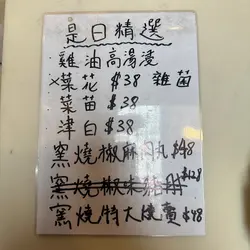 是日精選
雞油高湯浸
×菜花 $38 雜菌
菜苗 $38
津白 $38
窯燒椒麻肉丸 $48
$128
窯燒特大燒賣 $48